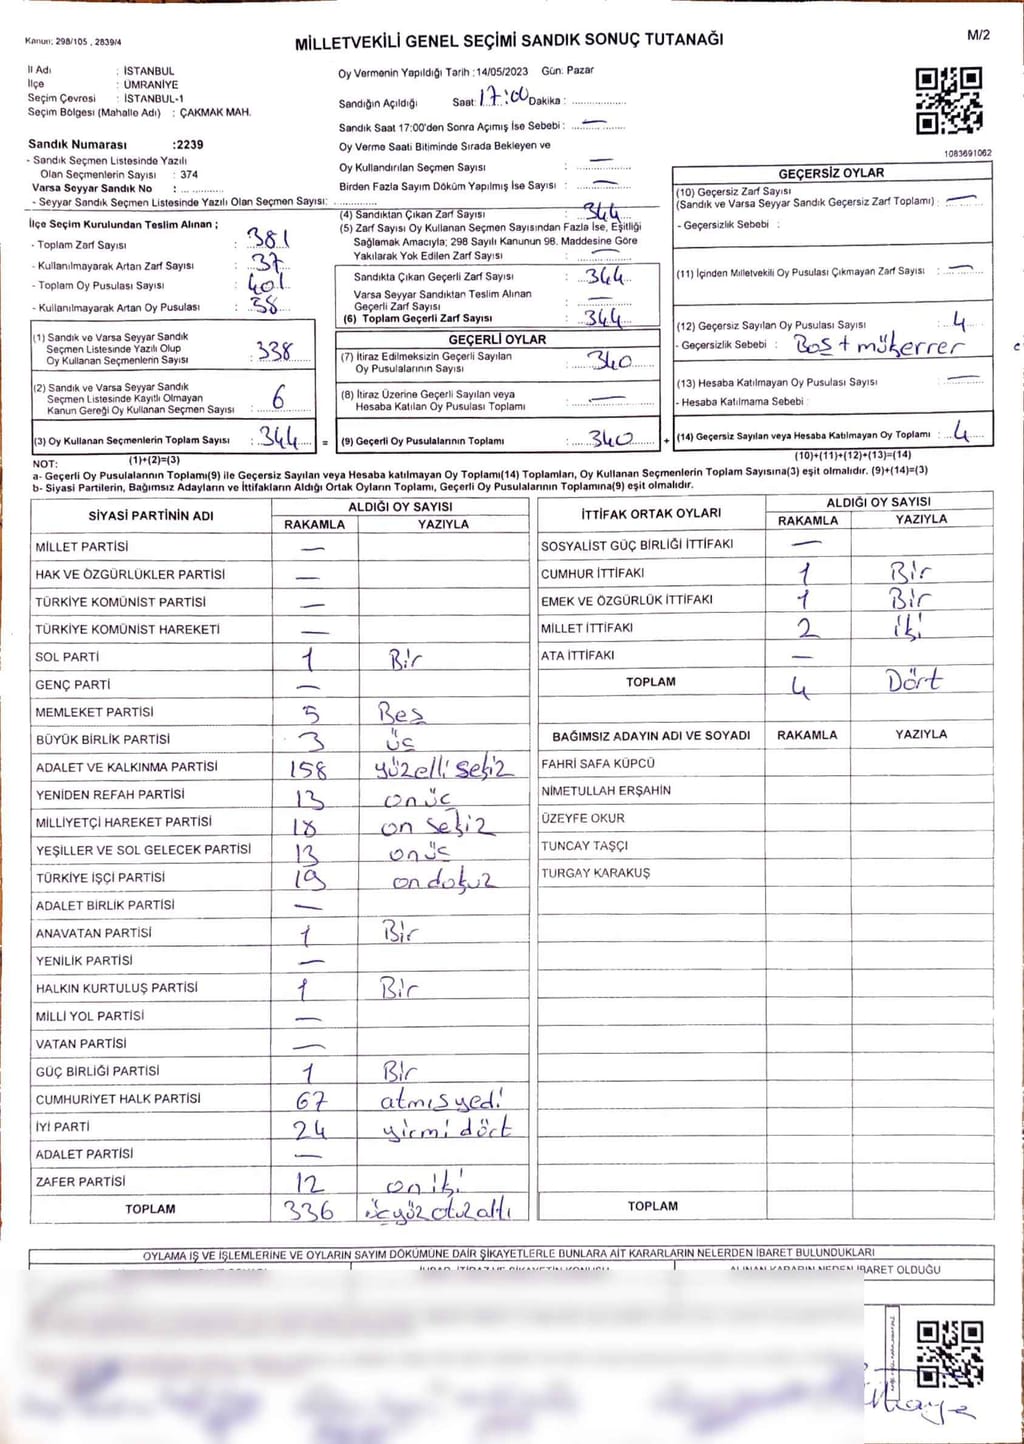 Kanun: 298/105 , 2839/4
MİLLETVEKİLİ GENEL SEÇİMİ SANDIK SONUÇ TUTANAĞI
M/2
İl Adı : İSTANBUL
İlçe : ÜMRANİYE
Seçim Çevresi : İSTANBUL-1
Seçim Bölgesi (Mahalle Adı) : ÇAKMAK MAH.
Sandık Numarası :2239
- Sandık Seçmen Listesinde Yazılı
Olan Seçmenlerin Sayısı : 374
Varsa Seyyar Sandık No : ... ...........
- Seyyar Sandık Seçmen Listesinde Yazılı Olan Seçmen Sayısı: ..............
Oy Vermenin Yapıldığı Tarih :14/05/2023 Gün: Pazar
Sandığın Açıldığı Saat: 17:00 Dakika : ..............
Sandık Saat 17:00'den Sonra Açımış İse Sebebi : —
Oy Verme Saati Bitiminde Sırada Bekleyen ve
Oy Kullandırılan Seçmen Sayısı : —
Birden Fazla Sayım Döküm Yapılmış İse Sayısı : —
1083691062
İlçe Seçim Kurulundan Teslim Alınan ;
- Toplam Zarf Sayısı : 381
- Kullanılmayarak Artan Zarf Sayısı : 37
- Toplam Oy Pusulası Sayısı : 401
- Kullanılmayarak Artan Oy Pusulası : 58
(1) Sandık ve Varsa Seyyar Sandık
Seçmen Listesinde Yazılı Olup
Oy Kullanan Seçmenlerin Sayısı : 338
(2) Sandık ve Varsa Seyyar Sandık
Seçmen Listesinde Kayıtlı Olmayan
Kanun Gereği Oy Kullanan Seçmen Sayısı : 6
(3) Oy Kullanan Seçmenlerin Toplam Sayısı : 344 =
(1)+(2)=(3)
(4) Sandıktan Çıkan Zarf Sayısı : 344
(5) Zarf Sayısı Oy Kullanan Seçmen Sayısından Fazla İse, Eşitliği
Sağlamak Amacıyla; 298 Sayılı Kanunun 98. Maddesine Göre
Yakılarak Yok Edilen Zarf Sayısı : —
Sandıkta Çıkan Geçerli Zarf Sayısı : 344
Varsa Seyyar Sandıktan Teslim Alınan
Geçerli Zarf Sayısı : —
(6) Toplam Geçerli Zarf Sayısı : 344
GEÇERLİ OYLAR
(7) İtiraz Edilmeksizin Geçerli Sayılan
Oy Pusulalarının Sayısı : 340
(8) İtiraz Üzerine Geçerli Sayılan veya
Hesaba Katılan Oy Pusulası Toplamı : —
(9) Geçerli Oy Pusulalarının Toplamı : 340 +
GEÇERSİZ OYLAR
(10) Geçersiz Zarf Sayısı
(Sandık ve Varsa Seyyar Sandık Geçersiz Zarf Toplamı) : —
- Geçersizlik Sebebi :
(11) İçinden Milletvekili Oy Pusulası Çıkmayan Zarf Sayısı : —
(12) Geçersiz Sayılan Oy Pusulası Sayısı : 4
- Geçersizlik Sebebi : Boş + mükerrer
(13) Hesaba Katılmayan Oy Pusulası Sayısı : —
- Hesaba Katılmama Sebebi :
(14) Geçersiz Sayılan veya Hesaba Katılmayan Oy Toplamı : 4
(10)+(11)+(12)+(13)=(14)
NOT:
a- Geçerli Oy Pusulalarının Toplamı(9) ile Geçersiz Sayılan veya Hesaba katılmayan Oy Toplamı(14) Toplamları, Oy Kullanan Seçmenlerin Toplam Sayısına(3) eşit olmalıdır. (9)+(14)=(3)
b- Siyasi Partilerin, Bağımsız Adayların ve İttifakların Aldığı Ortak Oyların Toplamı, Geçerli Oy Pusulalarının Toplamına(9) eşit olmalıdır.
SİYASİ PARTİNİN ADI ALDIĞI OY SAYISI
RAKAMLA YAZIYLA
MİLLET PARTİSİ —
HAK VE ÖZGÜRLÜKLER PARTİSİ —
TÜRKİYE KOMÜNİST PARTİSİ —
TÜRKİYE KOMÜNİST HAREKETİ —
SOL PARTİ 1 Bir
GENÇ PARTİ —
MEMLEKET PARTİSİ 5 Beş
BÜYÜK BİRLİK PARTİSİ 3 üç
ADALET VE KALKINMA PARTİSİ 158 yüzelli sekiz
YENİDEN REFAH PARTİSİ 13 onüç
MİLLİYETÇİ HAREKET PARTİSİ 18 on sekiz
YEŞİLLER VE SOL GELECEK PARTİSİ 13 onüç
TÜRKİYE İŞÇİ PARTİSİ 19 on dokuz
ADALET BİRLİK PARTİSİ —
ANAVATAN PARTİSİ 1 Bir
YENİLİK PARTİSİ —
HALKIN KURTULUŞ PARTİSİ 1 Bir
MİLLİ YOL PARTİSİ —
VATAN PARTİSİ —
GÜÇ BİRLİĞİ PARTİSİ 1 Bir
CUMHURİYET HALK PARTİSİ 67 atmış yedi
İYİ PARTİ 24 yirmi dört
ADALET PARTİSİ —
ZAFER PARTİSİ 12 on iki
TOPLAM 336 üçyüz otuz altı
İTTİFAK ORTAK OYLARI ALDIĞI OY SAYISI
RAKAMLA YAZIYLA
SOSYALİST GÜÇ BİRLİĞİ İTTİFAKI —
CUMHUR İTTİFAKI 1 Bir
EMEK VE ÖZGÜRLÜK İTTİFAKI 1 Bir
MİLLET İTTİFAKI 2 iki
ATA İTTİFAKI —
TOPLAM 4 Dört
BAĞIMSIZ ADAYIN ADI VE SOYADI RAKAMLA YAZIYLA
FAHRİ SAFA KÜPCÜ
NİMETULLAH ERŞAHİN
ÜZEYFE OKUR
TUNCAY TAŞÇI
TURGAY KARAKUŞ
TOPLAM
OYLAMA İŞ VE İŞLEMLERİNE VE OYLARIN SAYIM DÖKÜMÜNE DAİR ŞİKAYETLERLE BUNLARA AİT KARARLARIN NELERDEN İBARET BULUNDUKLARI
ALINAN KARARIN NEDEN İBARET OLDUĞU